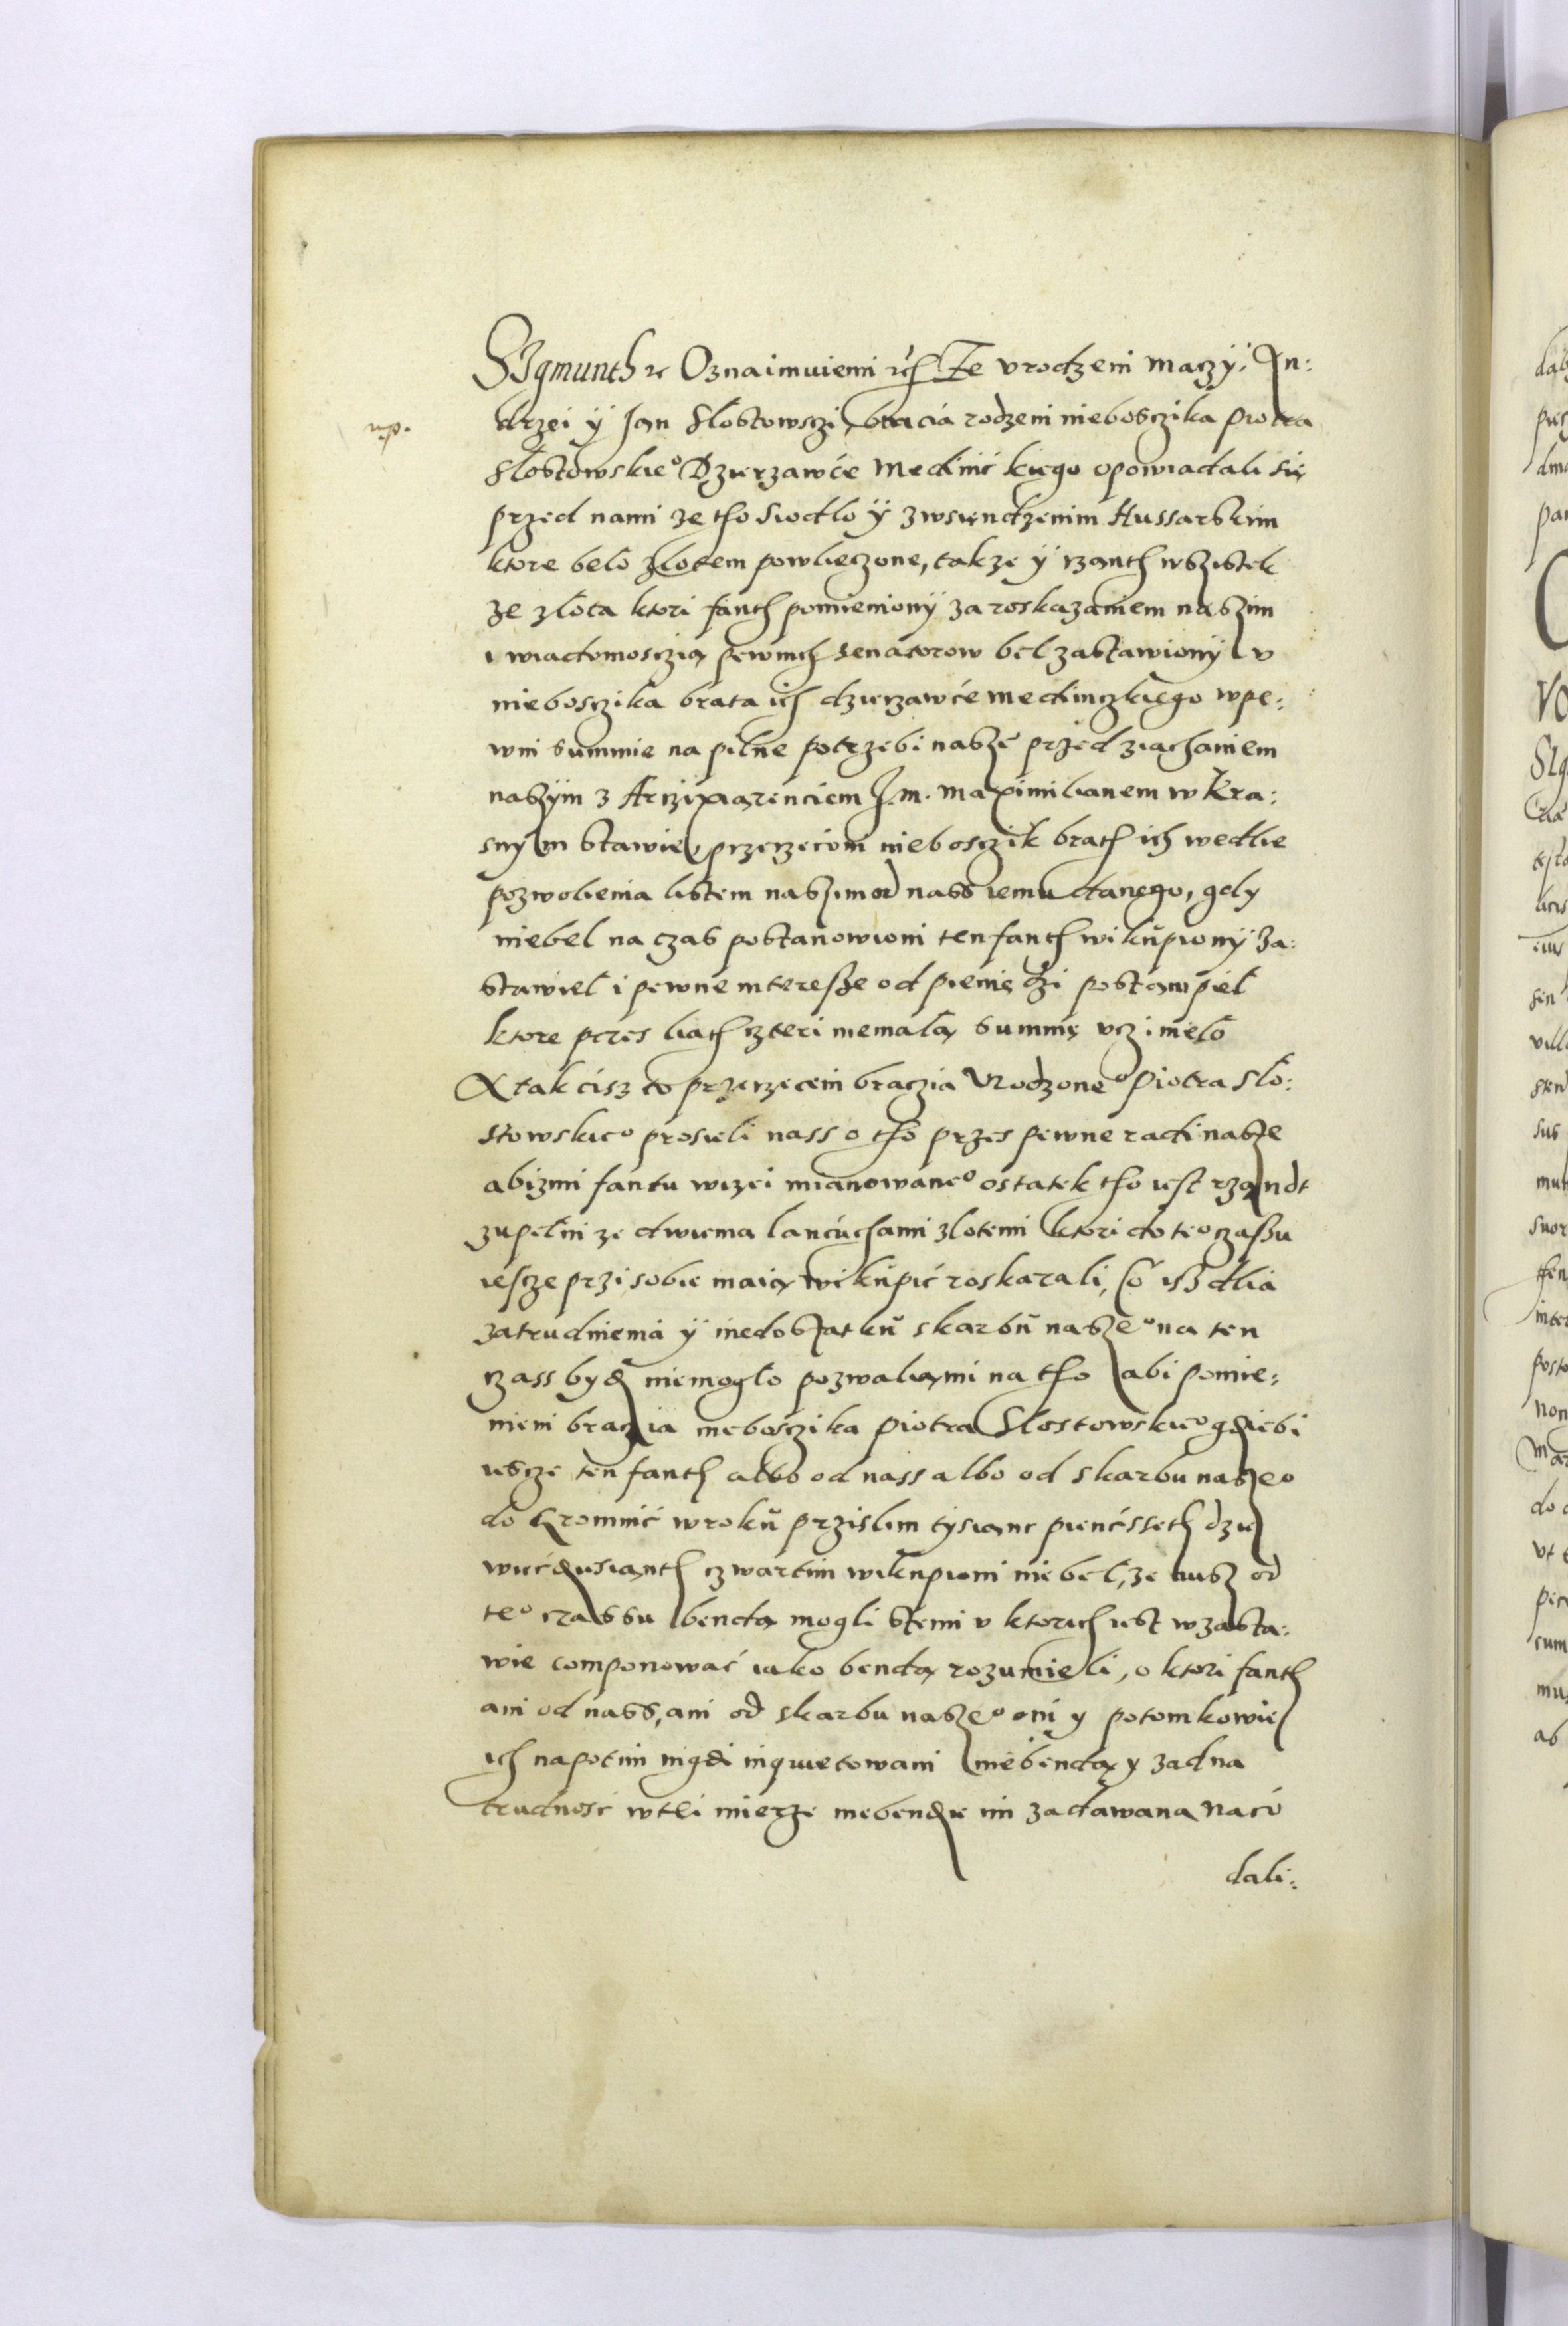 Sÿgmunth etc Oznaimuiemi etc Ze vrodzeni Maczÿ, An:
drzei ÿ Jan Slostowsczi, bracia rodzeni niebosczika Piotra
Slostowskieo Dzierzawce Medinickiego opowiadali się
przed nami ze tho siodlo ÿ z wsiendzenim Hussarskim
ktore belo zlotem powleczone, takze ÿ rzanth wszistek
ze zlota ktori fanth pomienionÿ za roskazaniem naszim
i wiadomosczią pewnich senatorow bel zastawionÿ v
niebosczika brata ich dzierzawce medinczkiego w pe:
wni summie na pilne potrzebi nasze przed ziachaniem
naszÿm z Arczixiążenciem J. m. Maximilianem w Kra:
snÿm stawie, przerzeconi niebosczik brath ich wedlie
pozwolienia listem naszim od nass iemu danego, gdy
niebel na czas postanowioni ten fanth wikupionÿ za:
stawiel i pewne interesze od pieniędzi postąmpiel
ktore przes liath czteri niemalą summę vczinielo
A tak cisz to przerzeceni braczia Urodzoneo Piotra Slo:
stowskieo prosieli nass o tho przes pewne radi nasze
abizmi fantu wizei mianowaneo ostatek tho iest rzandt
zupelni ze dwiema lancuchami zlotemi ktori do teo czassu
iescze przi sobie maią wikupić roskazali, Co isz dlia
zatrudnienia ÿ niedostatku skarbu naszeo na ten
czass bydź niemoglo pozwaliąmi na tho abi pomie:
nieni braczia niebosczika Piotra Slostowskieo gdziebi
iescze ten fanth albo od nass albo od skarbu naszeo
do Gromnic w roku przislim tysianc pieńćsseth dzie
wiećdziesianth czwartim wikupioni nie bel, ze iusz od
teo czassu bendą mogli stemi v ktorich iest w zasta:
wie componować iako bendą rozumieli, o ktori fanth
ani od nass, ani od skarbu naszeo oni y potomkowie
ich napotim nigdi inquietowani niebendą y zadna
trudnosc wtei mierze niebendzie im zadawana Naco
dali: